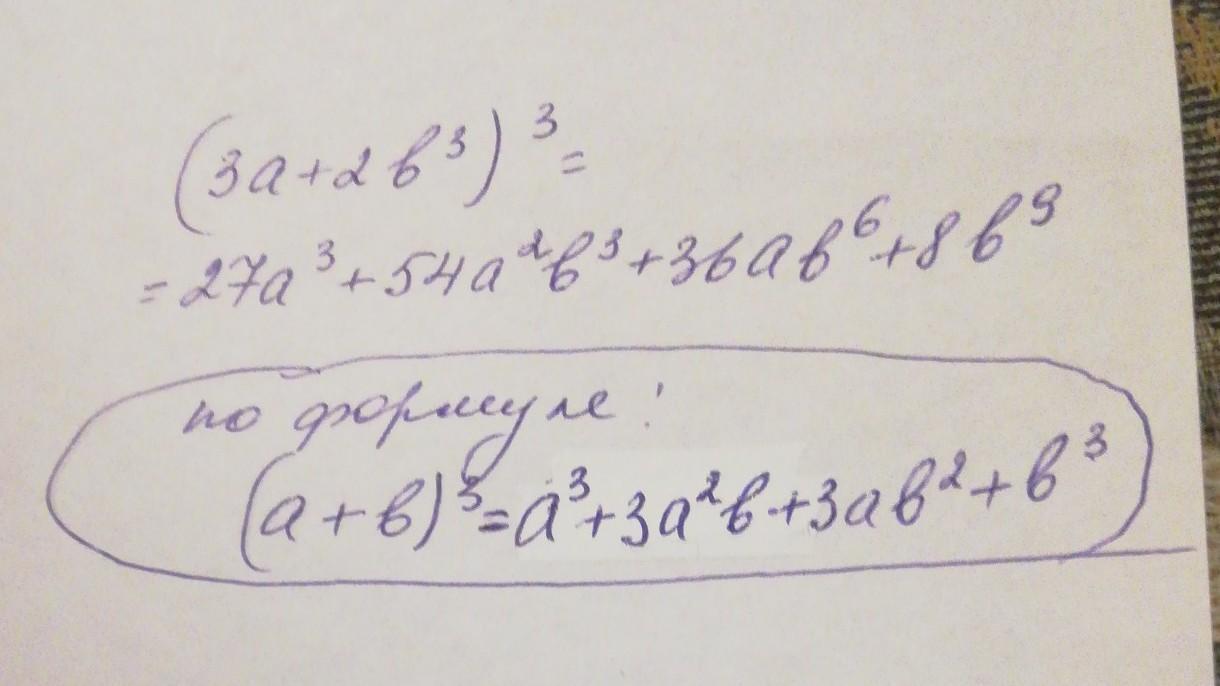 (3a+2b³)³=
=27a³+54a²b³+36ab⁶+8b⁹
по формуле:
(a+b)³=a³+3a²b+3ab²+b³